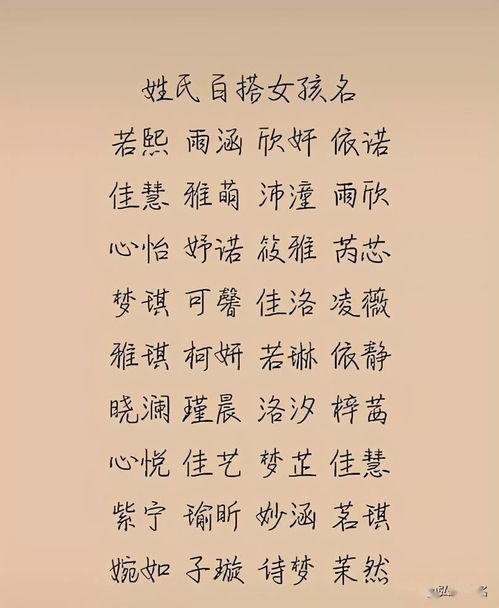 姓氏百搭女孩名
若熙 雨涵 欣妍 依诺
佳慧 雅萌 沛潼 雨欣
心怡 妤诺 筱雅 芮芯
梦琪 可馨 佳洛 凌薇
雅琪 柯妍 若琳 依静
晓澜 瑾晨 洛汐 梓茜
心悦 佳艺 梦芷 佳慧
紫宁 瑜昕 妙涵 茗琪
婉如 子璇 诗梦 茉然